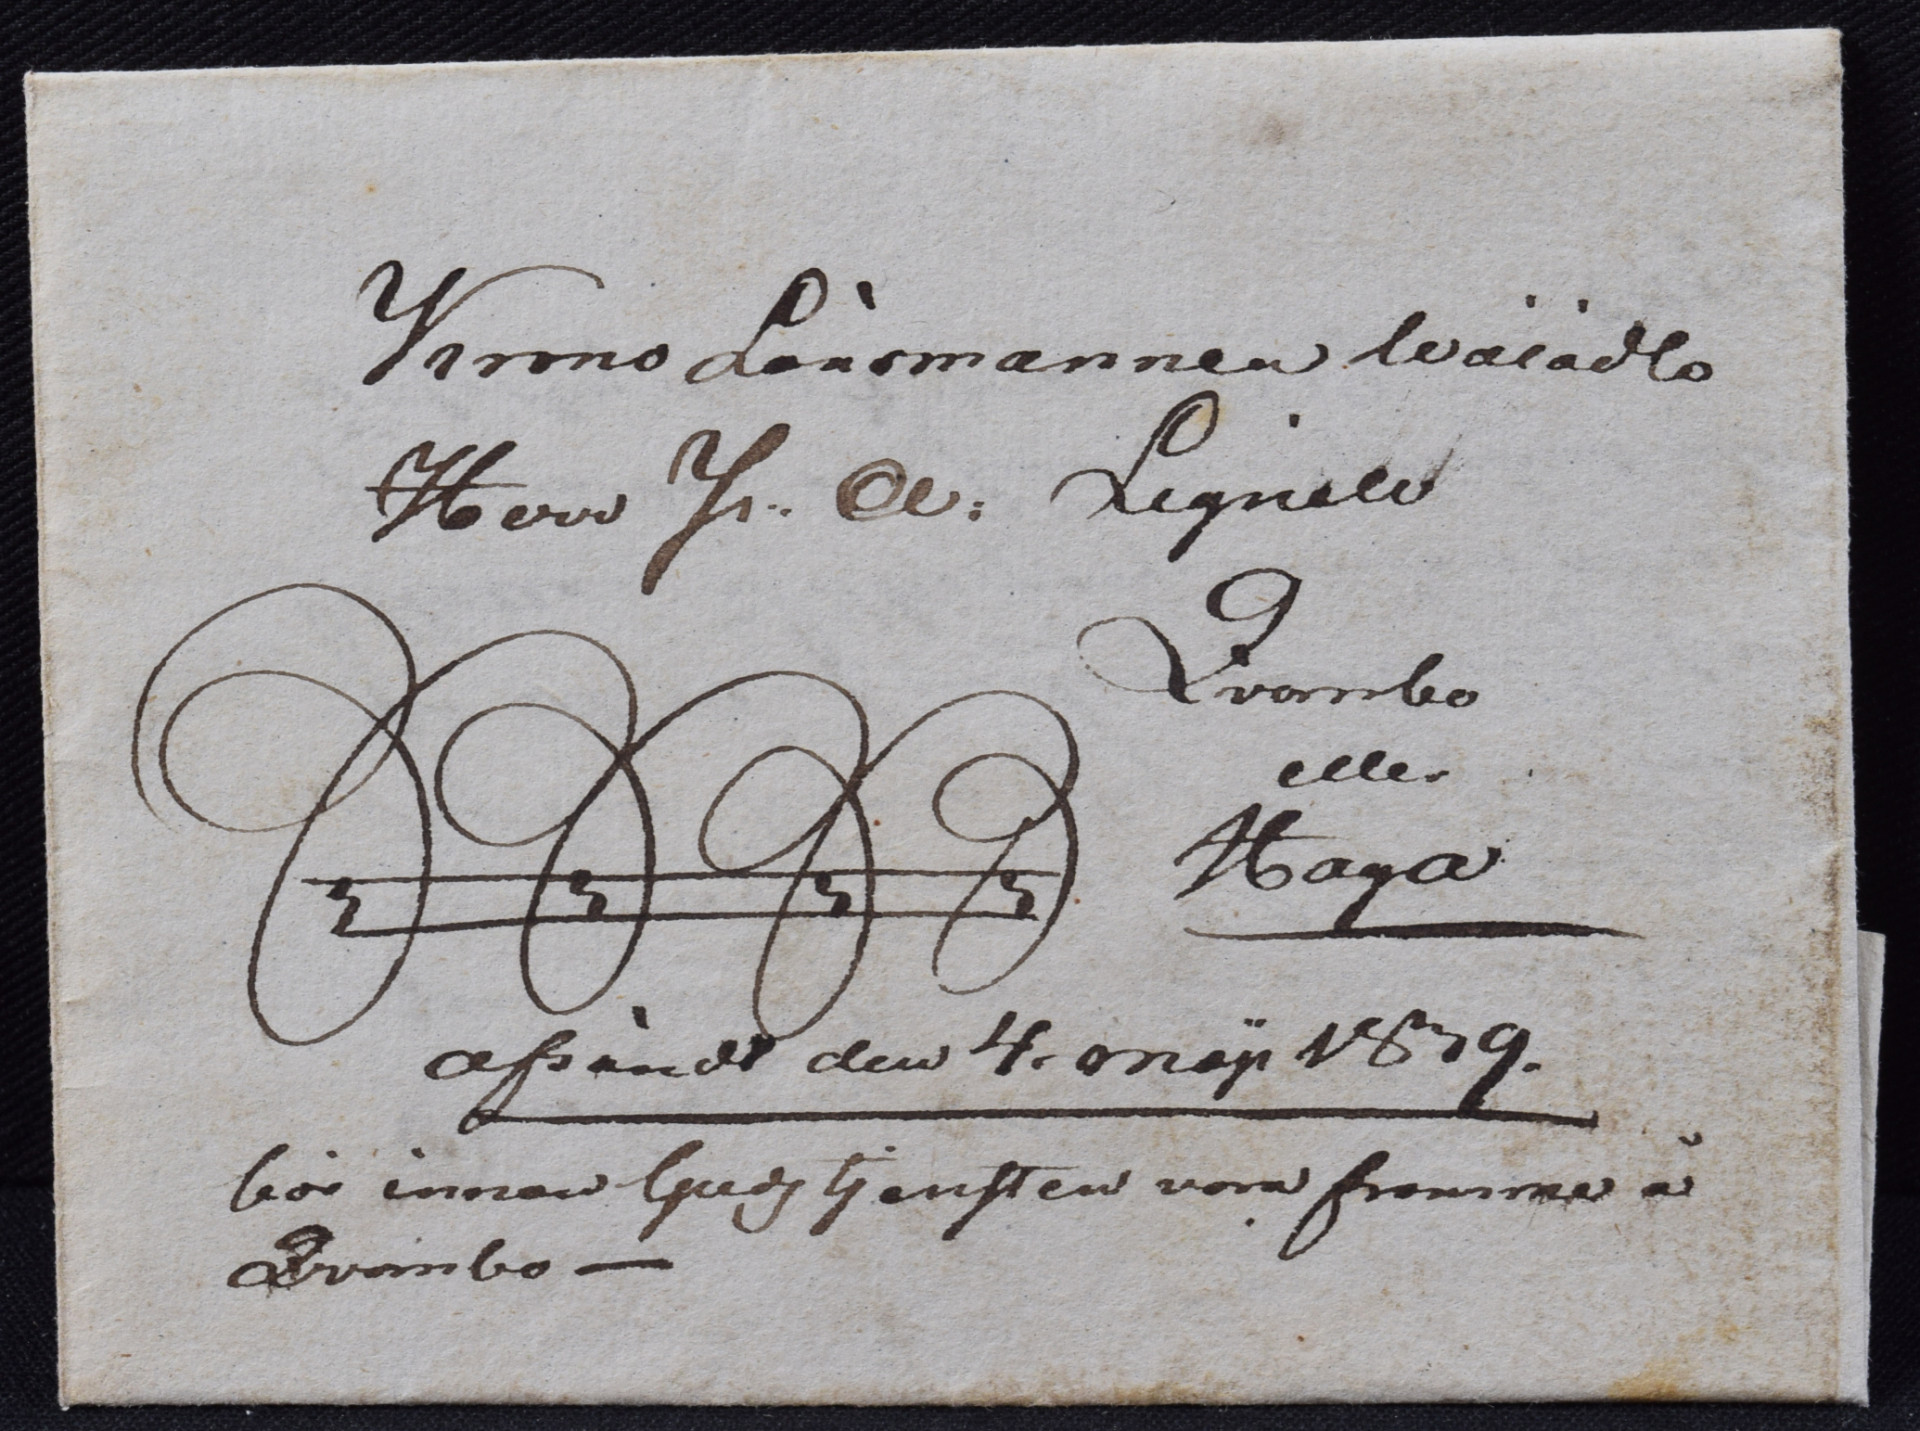 Krono Länsmannen wäladle
Herr J. A. Lignell
Qvambo
eller
Haga
afsändt den 4. maji 1839.
bör innan Gudztjensten vara framme å
Qvambo —